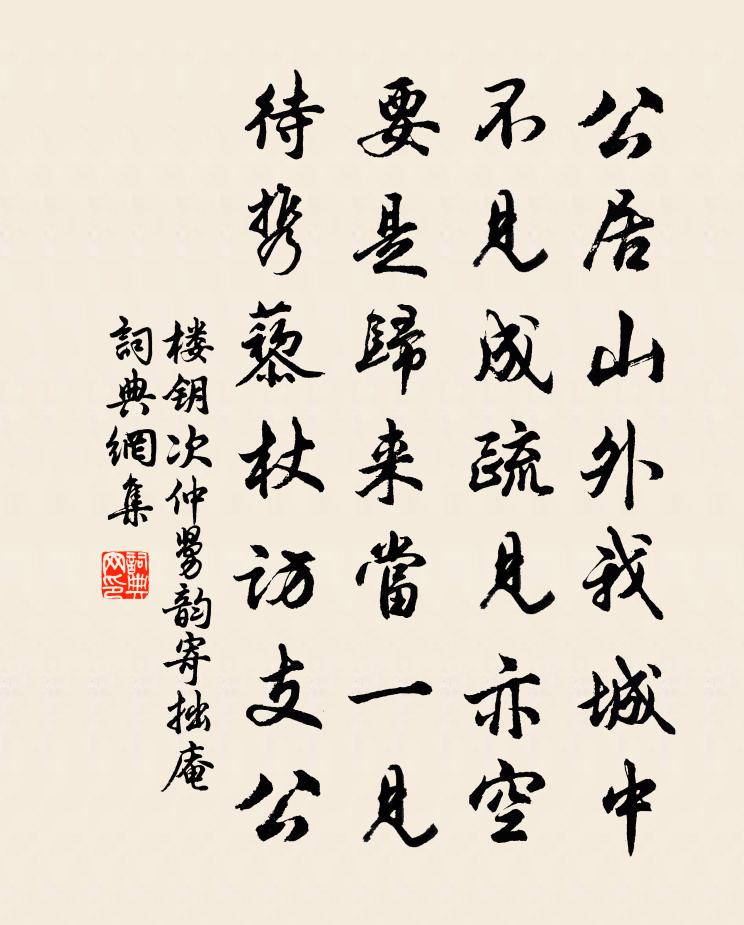 公居山外我城中
不見成疏見亦空
要是歸来當一見
待携藜杖访支公
楼钥次仲舅韵寄拙庵
詞典網集
詞典网印